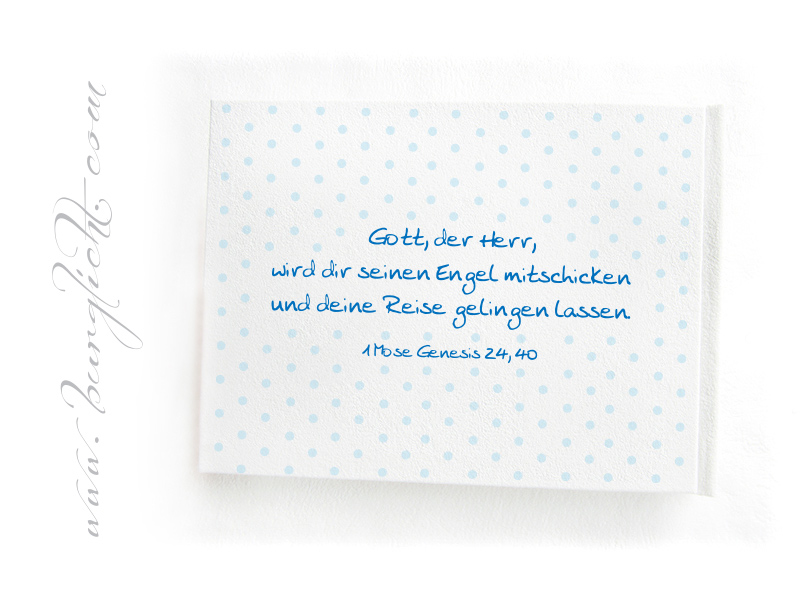 www.burglicht.com
Gott, der Herr,
wird dir seinen Engel mitschicken
und deine Reise gelingen lassen.
1 Mose Genesis 24, 40